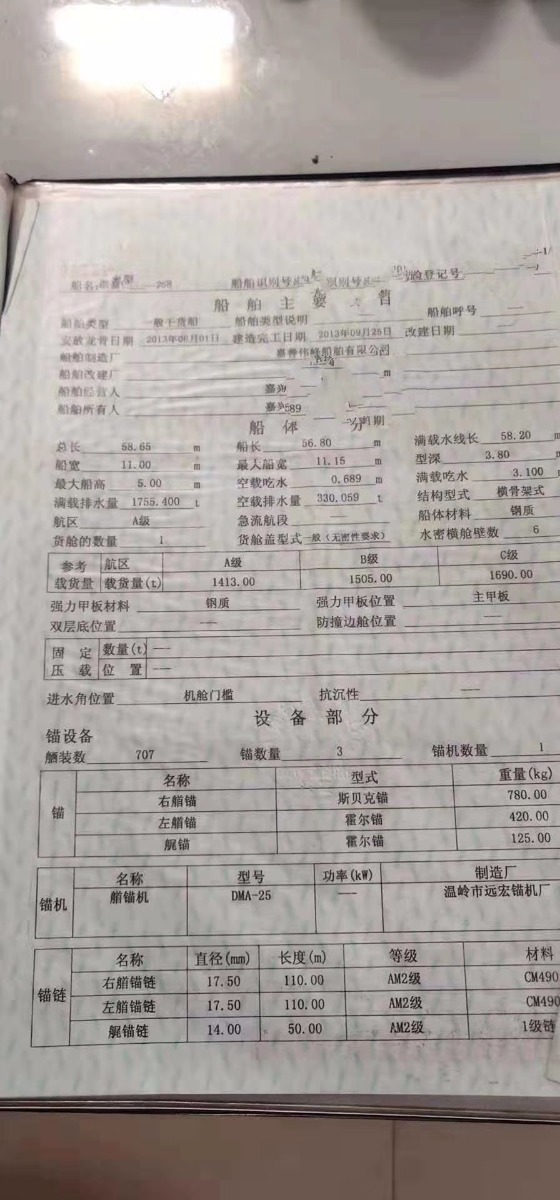 船名 268 船舶识别号 登记号
船舶主要
船舶类型 一般干货船 船舶类型说明 船舶呼号
安放龙骨日期 2013年06月01日 建造完工日期 2013年09月25日 改建日期
船舶制造厂 嘉善伟峰船舶有限公司
船舶改建厂
船舶经营人
船舶所有人
船体 分
总长 58.65 m 船长 56.80 m 满载水线长 58.20
船宽 11.00 m 最大船宽 11.15 m 型深 3.80 m
最大船高 5.00 m 空载吃水 0.689 m 满载吃水 3.100
满载排水量 1755.400 t 空载排水量 330.059 t 结构型式 横骨架式
航区 A级 急流航段 船体材料 钢质
货舱的数量 1 货舱盖型式 一般(无密性要求) 水密横舱壁数 6
参考载货量 航区 A级 B级 C级
载货量(t) 1413.00 1505.00 1690.00
强力甲板材料 钢质 强力甲板位置 主甲板
双层底位置 —— 防撞边舱位置 ——
固定压载 数量(t) ——
位置 ——
进水角位置 机舱门槛 抗沉性 ——
设备部分
锚设备
舾装数 707 锚数量 3 锚机数量 1
锚 名称 型式 重量(kg)
右艏锚 斯贝克锚 780.00
左艏锚 霍尔锚 420.00
艉锚 霍尔锚 125.00
锚机 名称 型号 功率(kW) 制造厂
艏锚机 DMA-25 —— 温岭市远宏锚机厂
锚链 名称 直径(mm) 长度(m) 等级 材料
右艏锚链 17.50 110.00 AM2级 CM490
左艏锚链 17.50 110.00 AM2级 CM490
艉锚链 14.00 50.00 AM2级 1级链